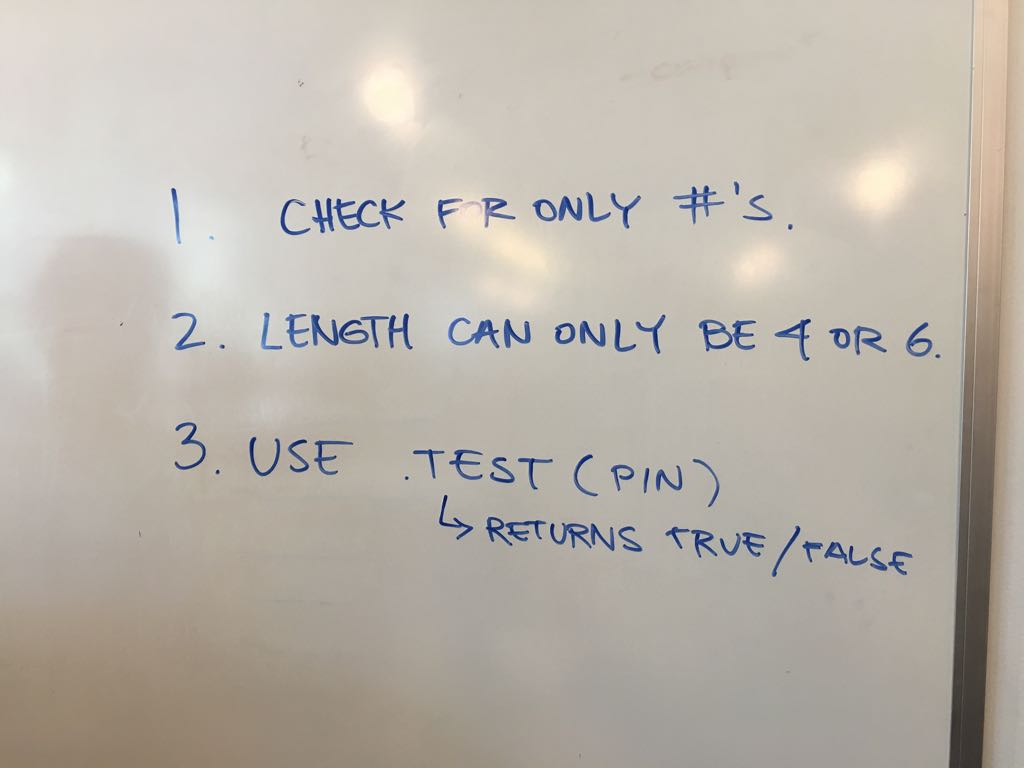 1. CHECK FOR ONLY #'S.
2. LENGTH CAN ONLY BE 4 OR 6.
3. USE .TEST (PIN)
↳ RETURNS TRUE/FALSE